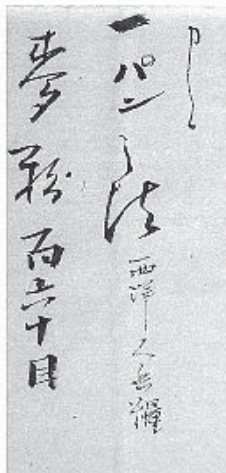 一パン之法 西洋人兵糧
麥粉 百六十目